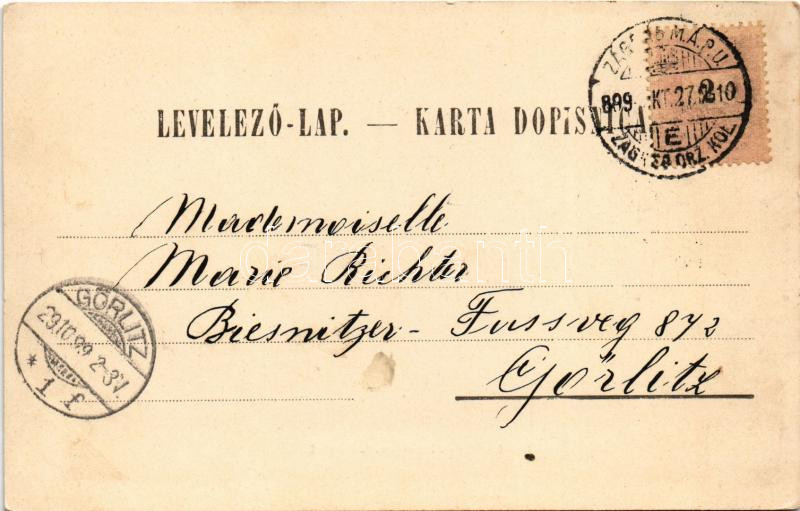 ZÁGRÁB M.Á.P.U.
899 OKT. 27. 10
E
ZÁGREB ORZ. KOL.
2
LEVELEZŐ-LAP. — KARTA DOPISNICA
Mademoiselle
Marie Richter
Biesnitzer- Fussveg 872
Görlitz
GÖRLITZ
29.10.99. 2-3V.
* 1 f
darabanth